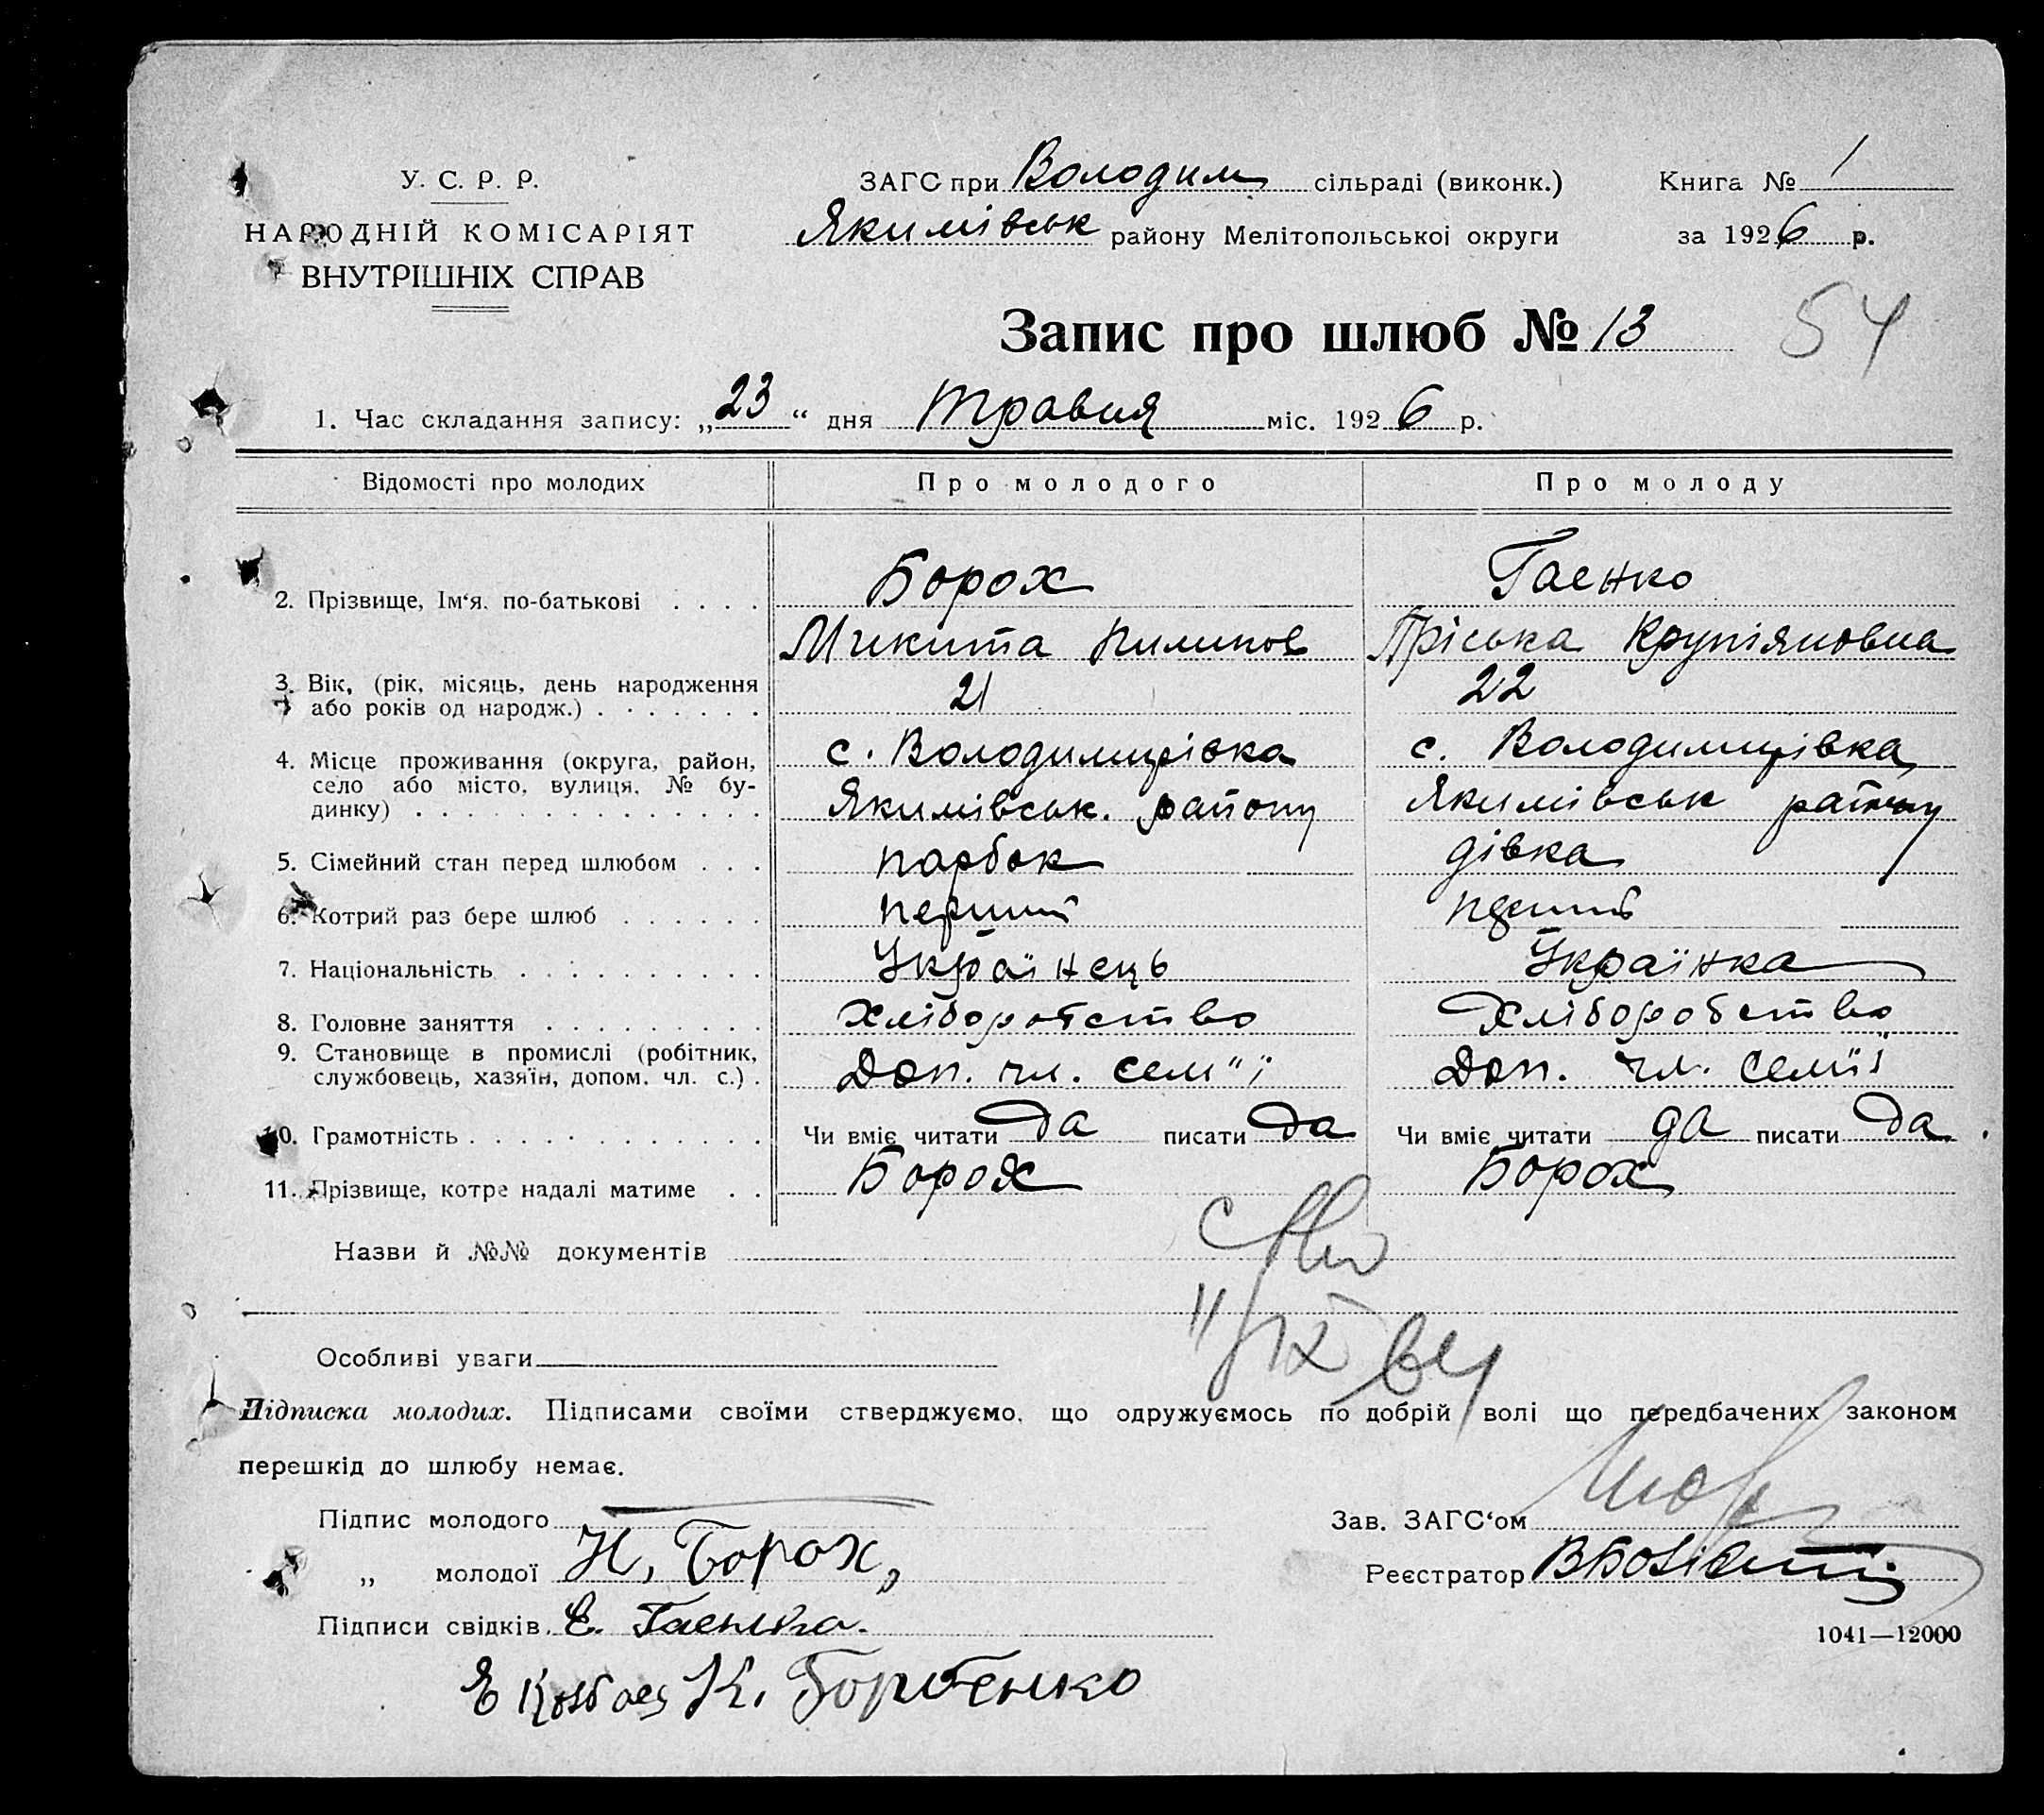 У. С. Р. Р.
НАРОДНІЙ КОМІСАРІЯТ
ВНУТРІШНІХ СПРАВ
ЗАГС при Володим сільраді (виконк.)
Якимівськ району Мелітопольської округи
Книга № 1
за 1926 р.
Запис про шлюб № 13
54
1. Час складання запису: „23“ дня травня міс. 1926 р.
Відомості про молодих Про молодого Про молоду
2. Прізвище, Ім'я. по-батькові . . . . Борох Гаенко
Микита Пилипов Пріська Крупіяновна
3. Вік, (рік, місяць, день народження
або років од народж.) . . . . . . . 21 22
4. Місце проживання (округа, район, с. Володимирівка с. Володимирівка
село або місто, вулиця, № бу-
динку) . . . . . . . . . . . . . . Якимівськ. району Якимівськ району
5. Сімейний стан перед шлюбом . . . парбок дівка
6. Котрий раз бере шлюб . . . . . . перший
7. Національність . . . . . . . . . . Українець Українка
8. Головне заняття . . . . . . . . . хліборобство хліборобство
9. Становище в промислі (робітник,
службовець, хазяїн, допом. чл. с.) . Доп. чл. сем"ї Доп. чл. семії
10. Грамотність . . . . . . . . . . . . Чи вміє читати да писати да Чи вміє читати да писати да
11. Прізвище, котре надалі матиме . . Борох Борох
Назви й №№ документів
Особливі уваги
Підписка молодих. Підписами своїми стверджуємо, що одружуємось по добрій волі що передбачених законом
перешкід до шлюбу немає.
Підпис молодого
„ молодої Н, Борох,
Підписи свідків. Е. Гаенко.
К. Горбенко
Зав. ЗАГС'ом
Реєстратор
1041—12000